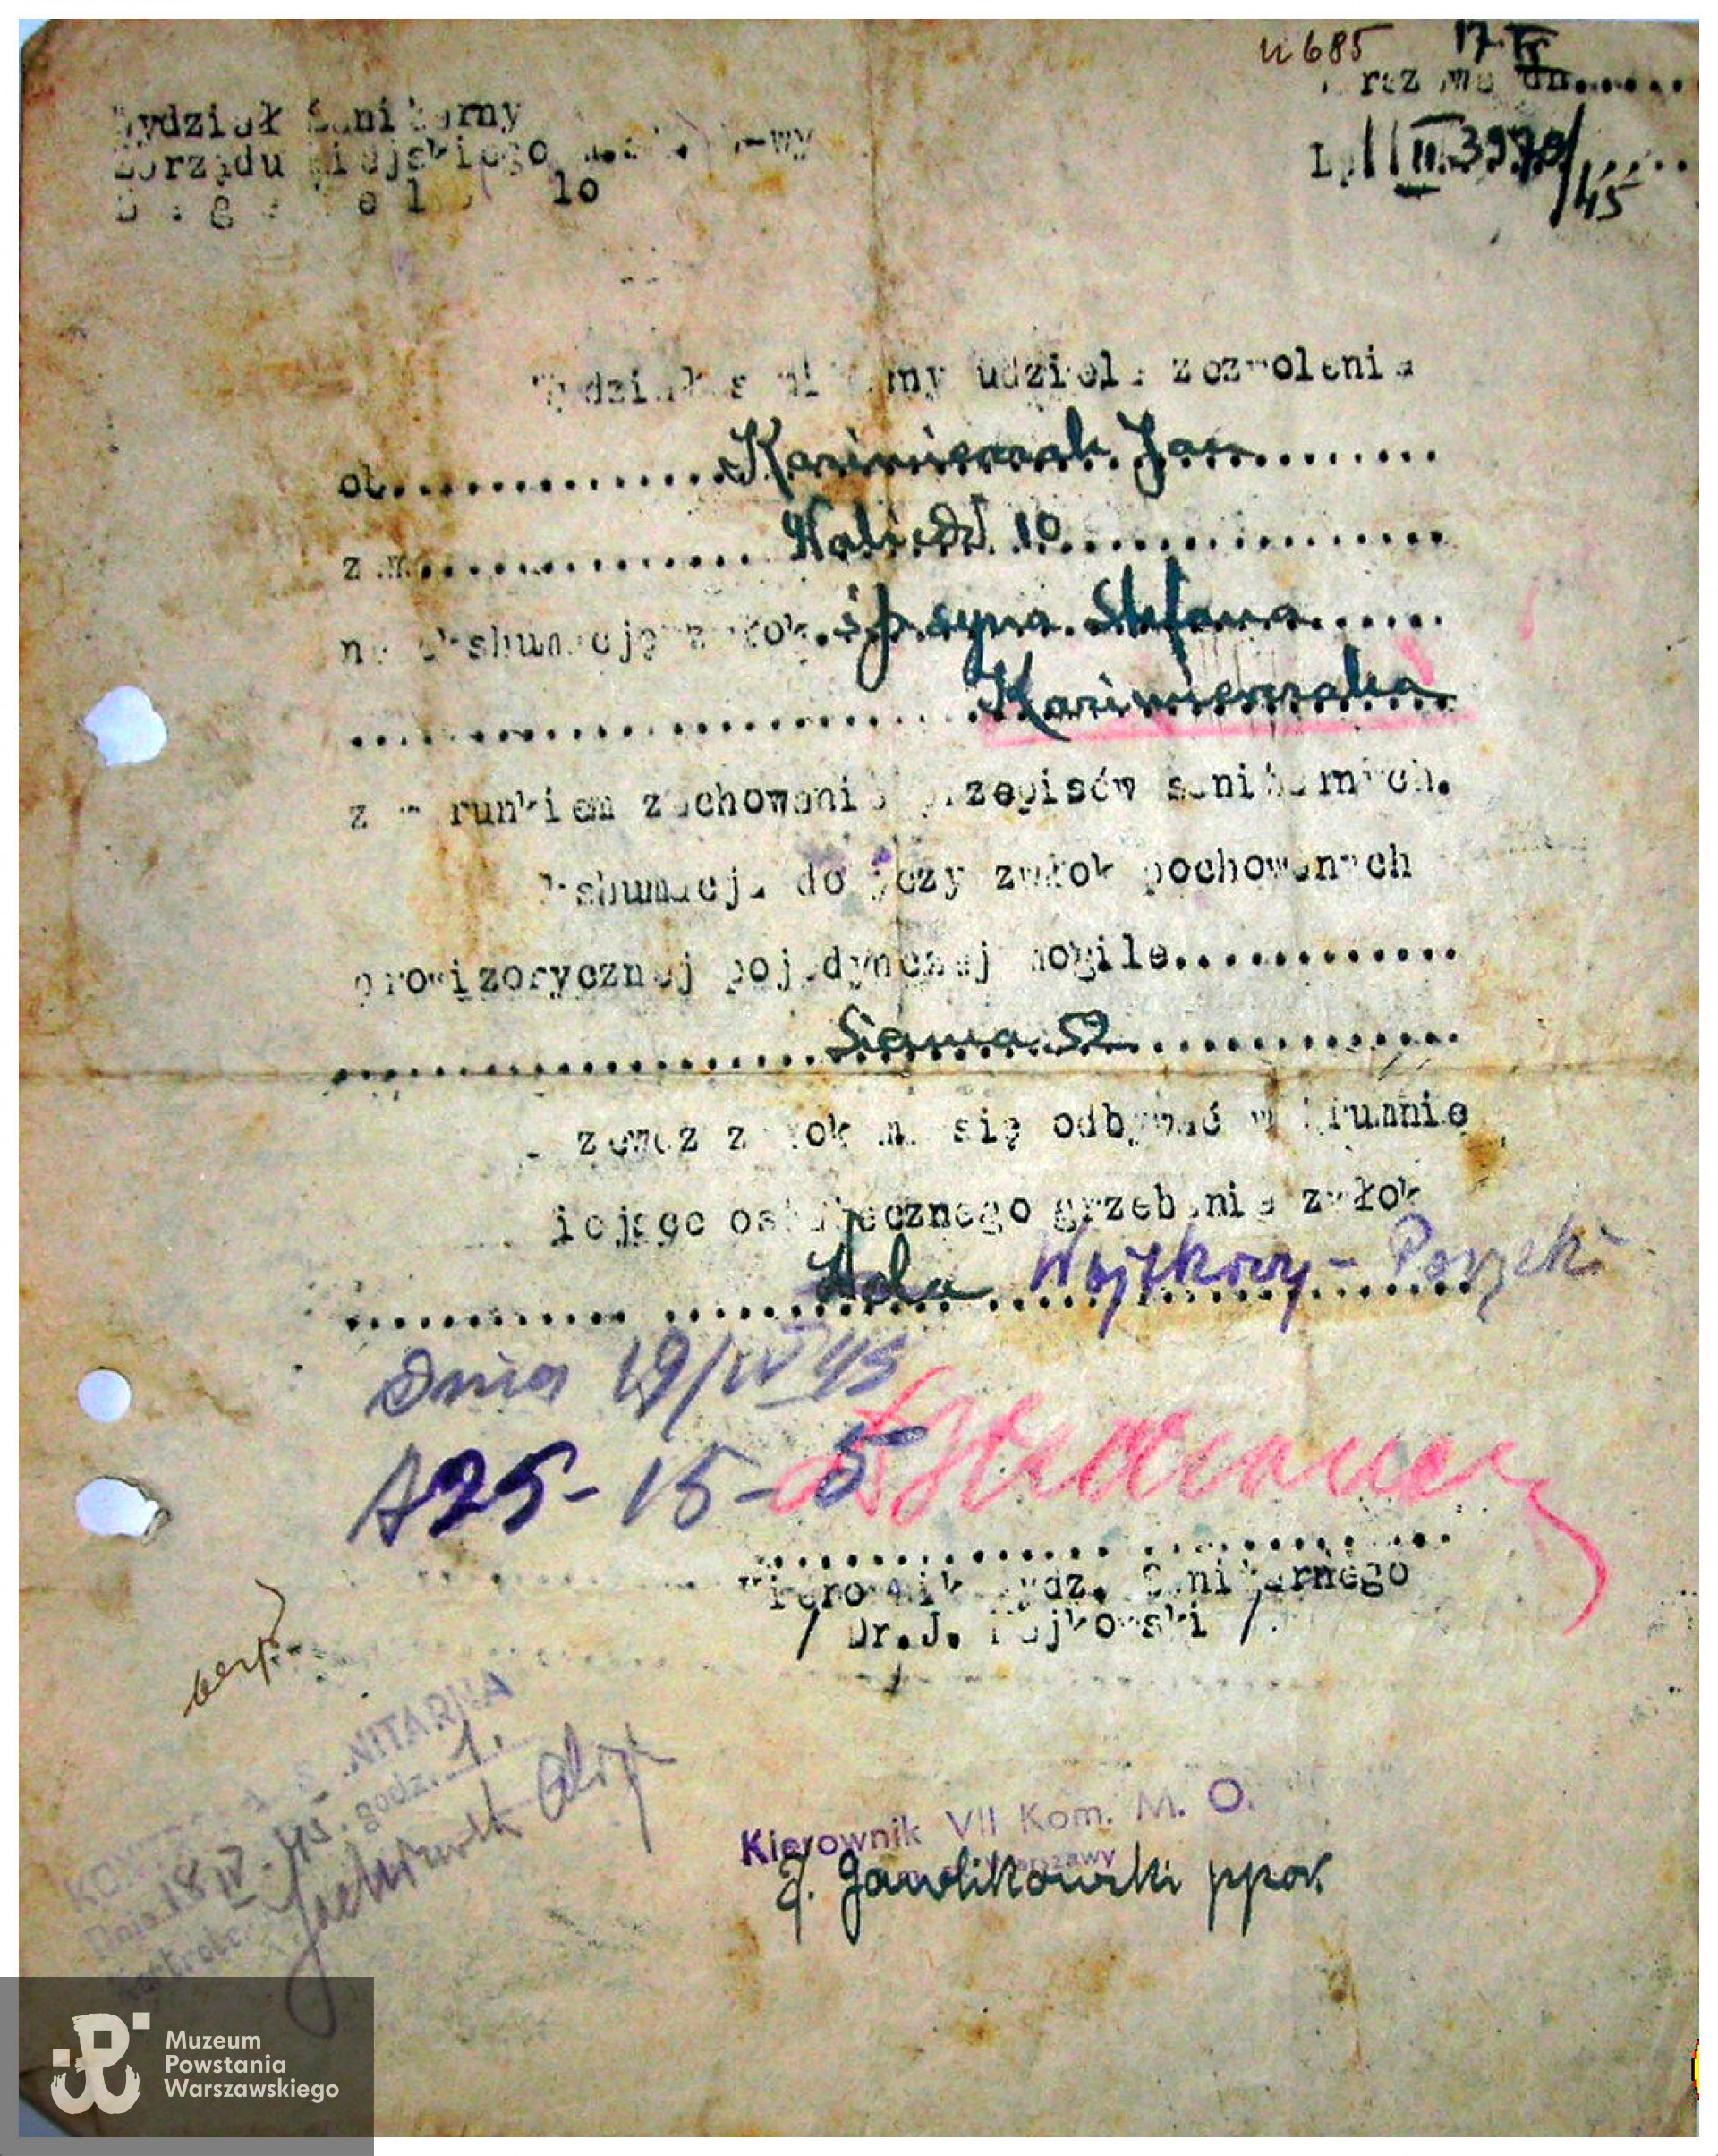 u 685 17.IV
dn......
Wydział Sanitarny
Zarządu Miejskiego
10
L. II 3970/45
Wydział Sanitarny udziela zezwolenia
ob. Kaźmierczak Jan
zam. 10
na ekshumację zwłok ś.p. syna Stefana
Kaźmierczaka
z warunkiem zachowania przepisów sanitarnych.
Ekshumacja dotyczy zwłok pochowanych
prowizorycznej pojedynczej mogile
Sienna 52
zwłok ma się odbywać w trumnie
miejsce ostatecznego grzebania zwłok
Wola Wojskowy - Powązki
Dnia 19/IV 45
A25-15-5
Kierownik Wydz. Sanitarnego
/ Dr.J. /
SANITARNA
Dnia 18 IV 45. godz. 1.
Kierownik VII Kom. M. O.
Warszawy
J. Gawlikowski ppor.
Muzeum
Powstania
Warszawskiego